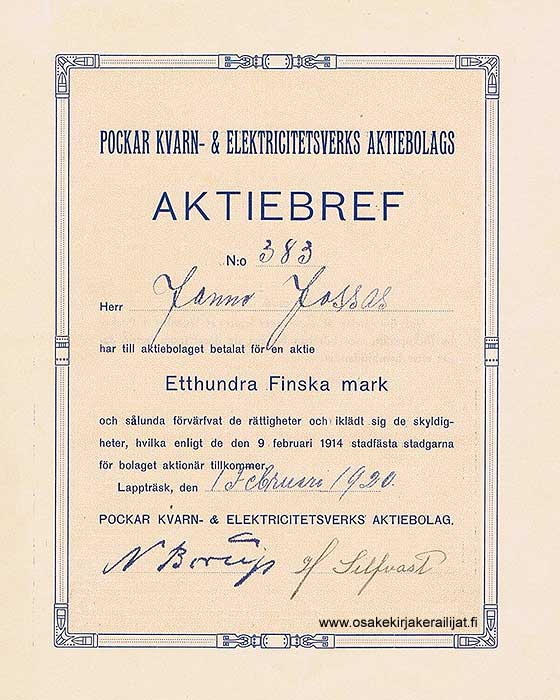 POCKAR KVARN- & ELEKTRICITETSVERKS AKTIEBOLAGS
AKTIEBREF
N:o 383
Herr Janne Jossas
har till aktiebolaget betalat för en aktie
Etthundra Finska mark
och sålunda förvärfvat de rättigheter och iklädt sig de skyldig-
heter, hvilka enligt de den 9 februari 1914 stadfästa stadgarna
för bolaget aktionär tillkommer.
Lappträsk, den 1 Februari 1920.
POCKAR KVARN- & ELEKTRICITETSVERKS AKTIEBOLAG.
N Borup
www.osakekirjakerailijat.fi